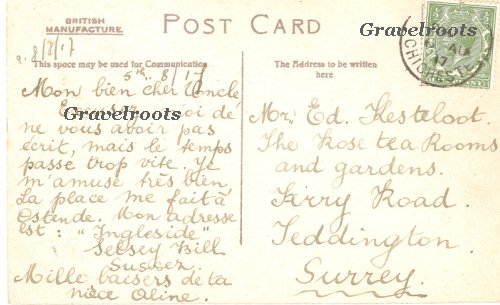 BRITISH
MANUFACTURE.
POST CARD
Gravelroots
8/8/17
This space may be used for Communication.
The Address to be written
here
5th. 8/17
Mon bien cher Oncle
Excusez moi de
Gravelroots
ne vous avoir pas
écrit, mais le temps
passe trop vite. Je
m'amuse très bien,
La place me fait à
Ostende. Mon adresse
est: "Ingleside"
Selsey Bill
Sussex
Mille baisers de ta
nièce Aline.
Mr. Ed. Kesteloot.
The Rose tea Rooms
and gardens.
Firry Road.
Teddington.
Surrey.
CHICHESTER
AU
17
Gravelroots